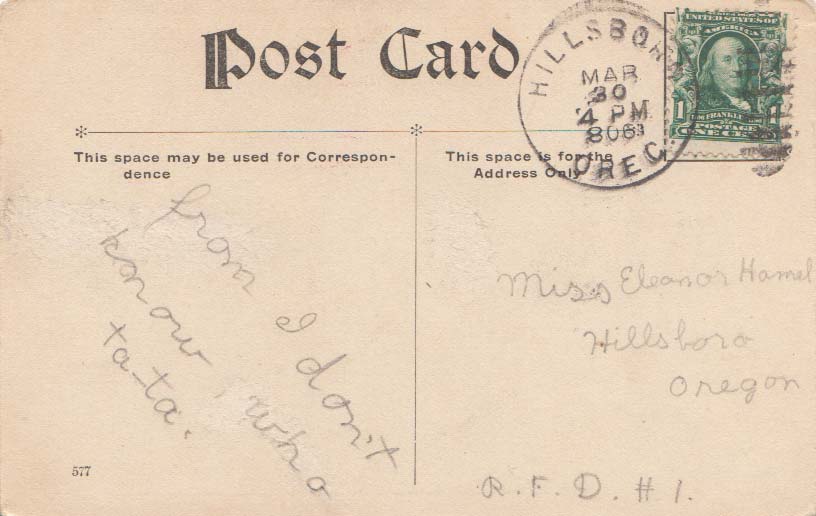 Post Card
This space may be used for Correspon-
dence
from I don't
know who
ta-ta.
577
This space is for the
Address Only
HILLSBORO
MAR
30
4 PM
OREG.
UNITED STATES OF
AMERICA
FRANKLIN
POSTAGE
ONE CENT
Miss Eleanor Hamel
Hillsboro
Oregon
R. F. D. # 1.